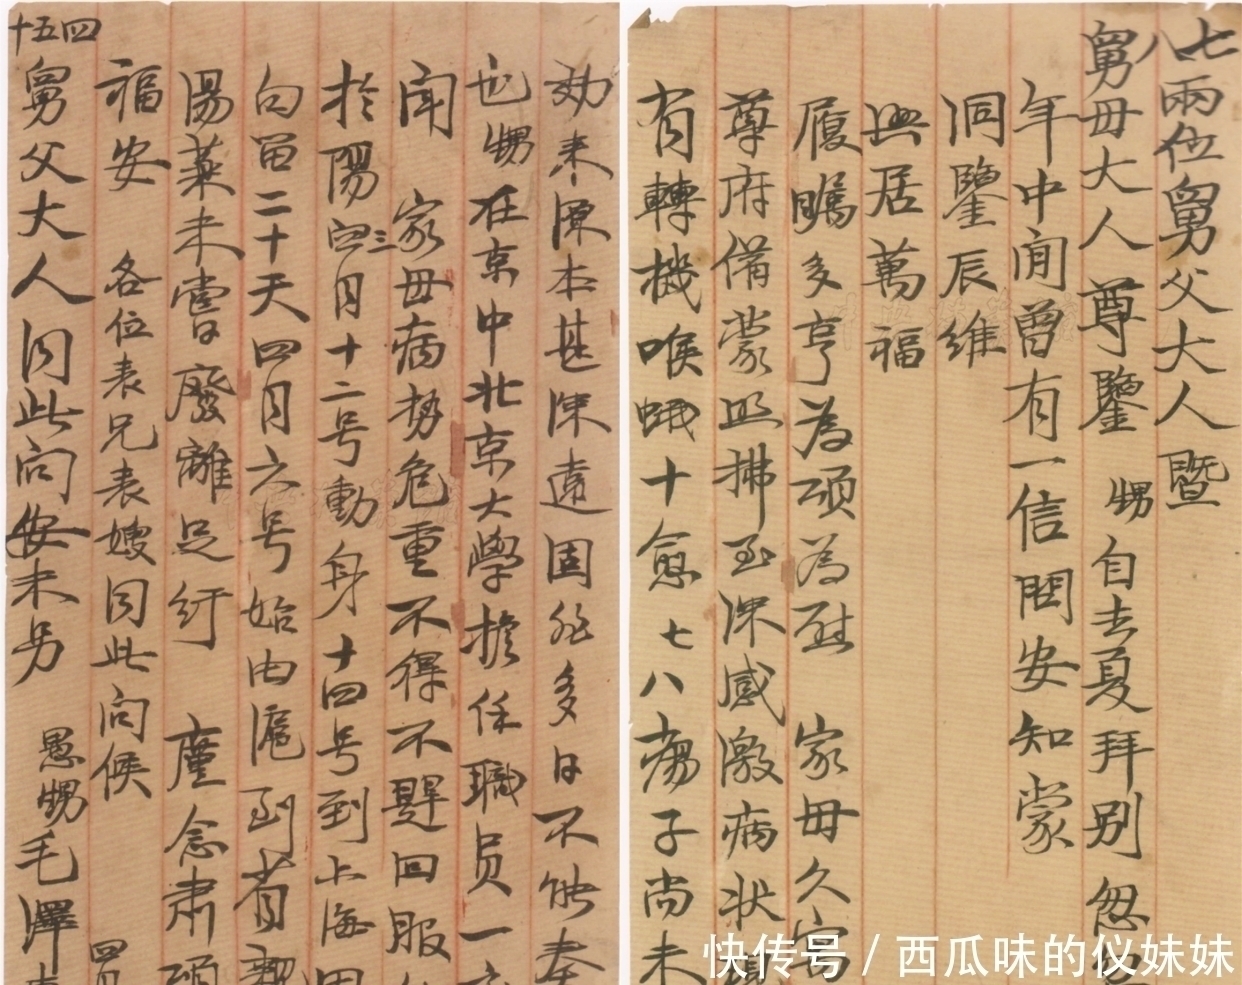 七
八
兩位舅父大人暨
舅母大人尊鑒 甥自去夏拜別 忽
年中間曾有一信問安知蒙
洞鑒辰維
興居萬福
履瞩多亨為頌為慰 家母久寓
尊府備蒙照拂至深感激病狀
有轉機喉蛾十愈七八瘍子尚未
効來源本甚深遠固非多日不能奏
也 甥在京中北京大學擔任職員一
聞 家母病勢危重不得不趕回服
於陽三月十二号動身十四号到上海
勾留二十天四月六号始由滬到省
湯藥未嘗廢離足紓 廑念肅頌
福安 各位表兄表嫂同此問候
四五十
舅父大人同此問安未另
愚甥毛澤
快传号 / 西瓜味的仪妹妹